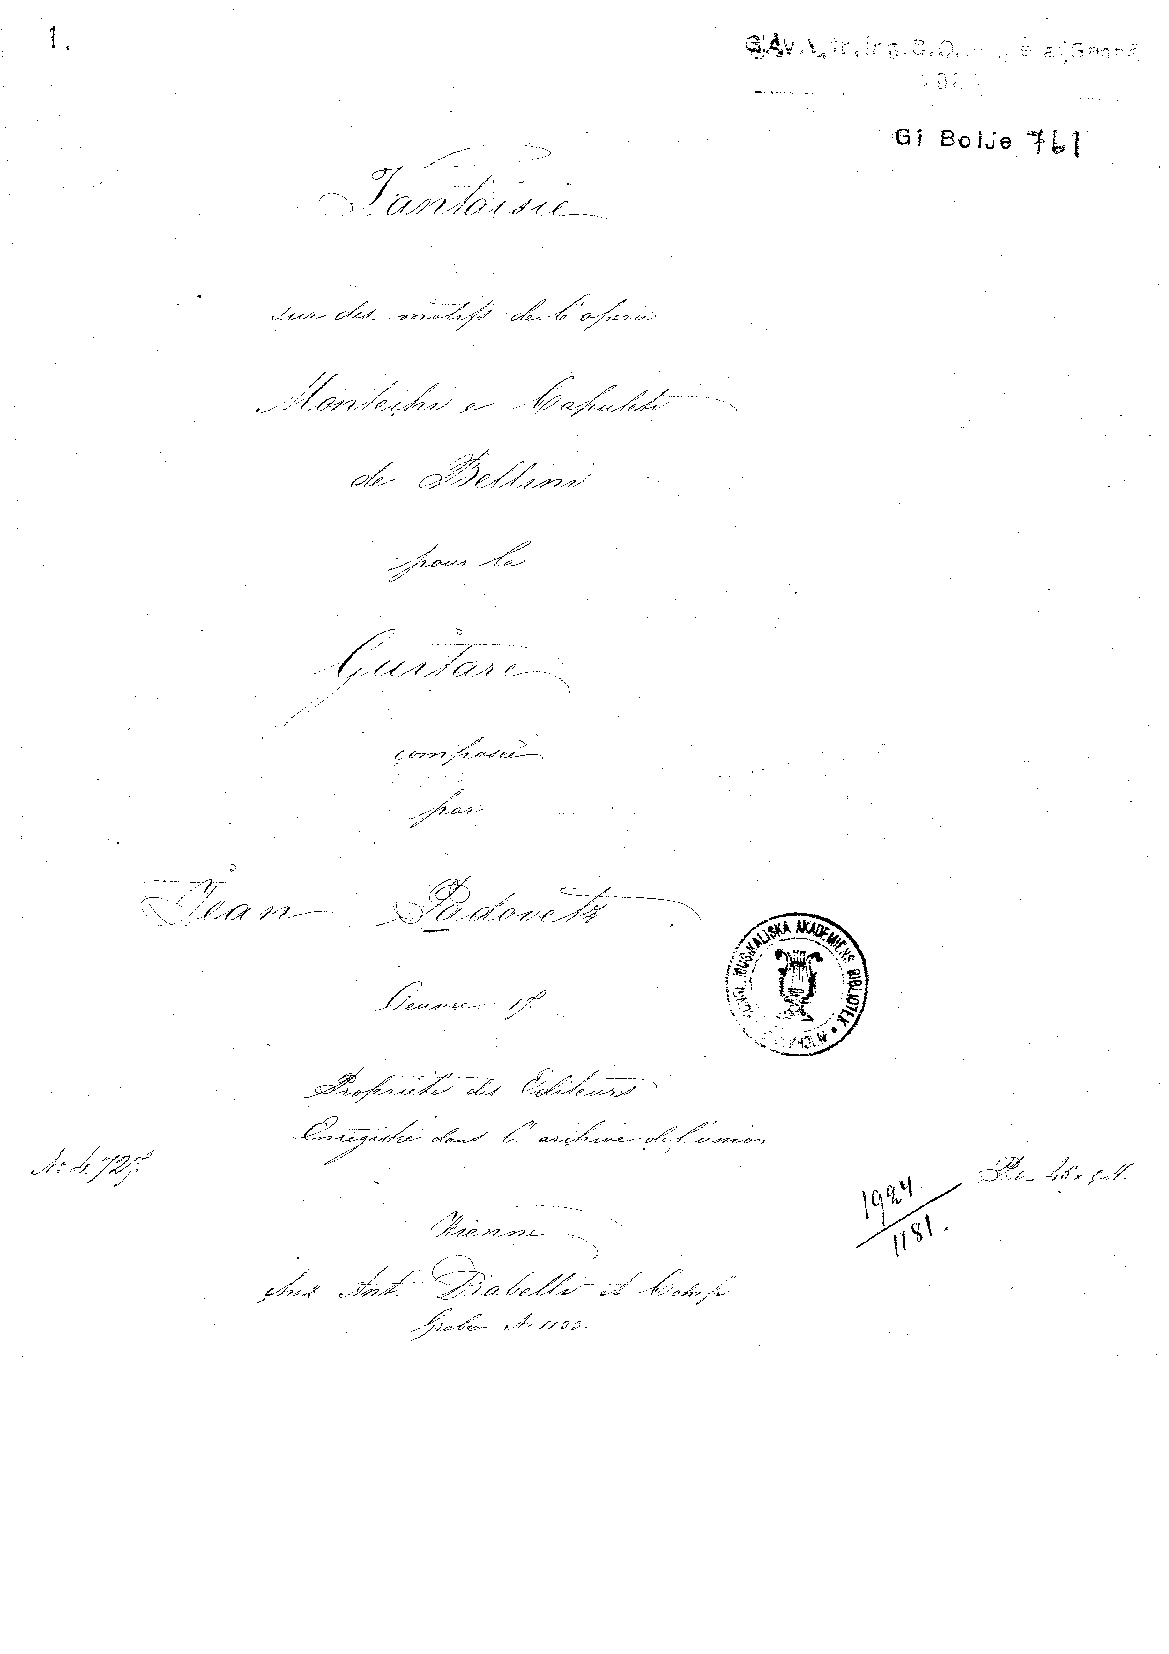 1.
Gi Bolje 761
Fantaisie
sur des motifs de l'opera
Montechi e Capuleti
de Bellini
pour la
Guitare
composée
par
Jean Padovetz
MUSIKALISKA AKADEMIENS BIBLIOTEK
Oeuvre
Proprieté des Editeurs
Enregistré dans l'archive de l'union
No 4.727.
1924
1181.
Vienne
chez Ant. Diabelli et Comp
Graben No 1133.